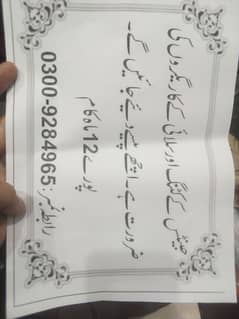 جینٹس کے کٹنگ اور سلائی کے کاریگروں کی
ضرورت ہے۔ اچھے پیسے دیئے جائیں گے۔
پورے 12 ماہ کام
رابطہ نمبر: 0300-9284965